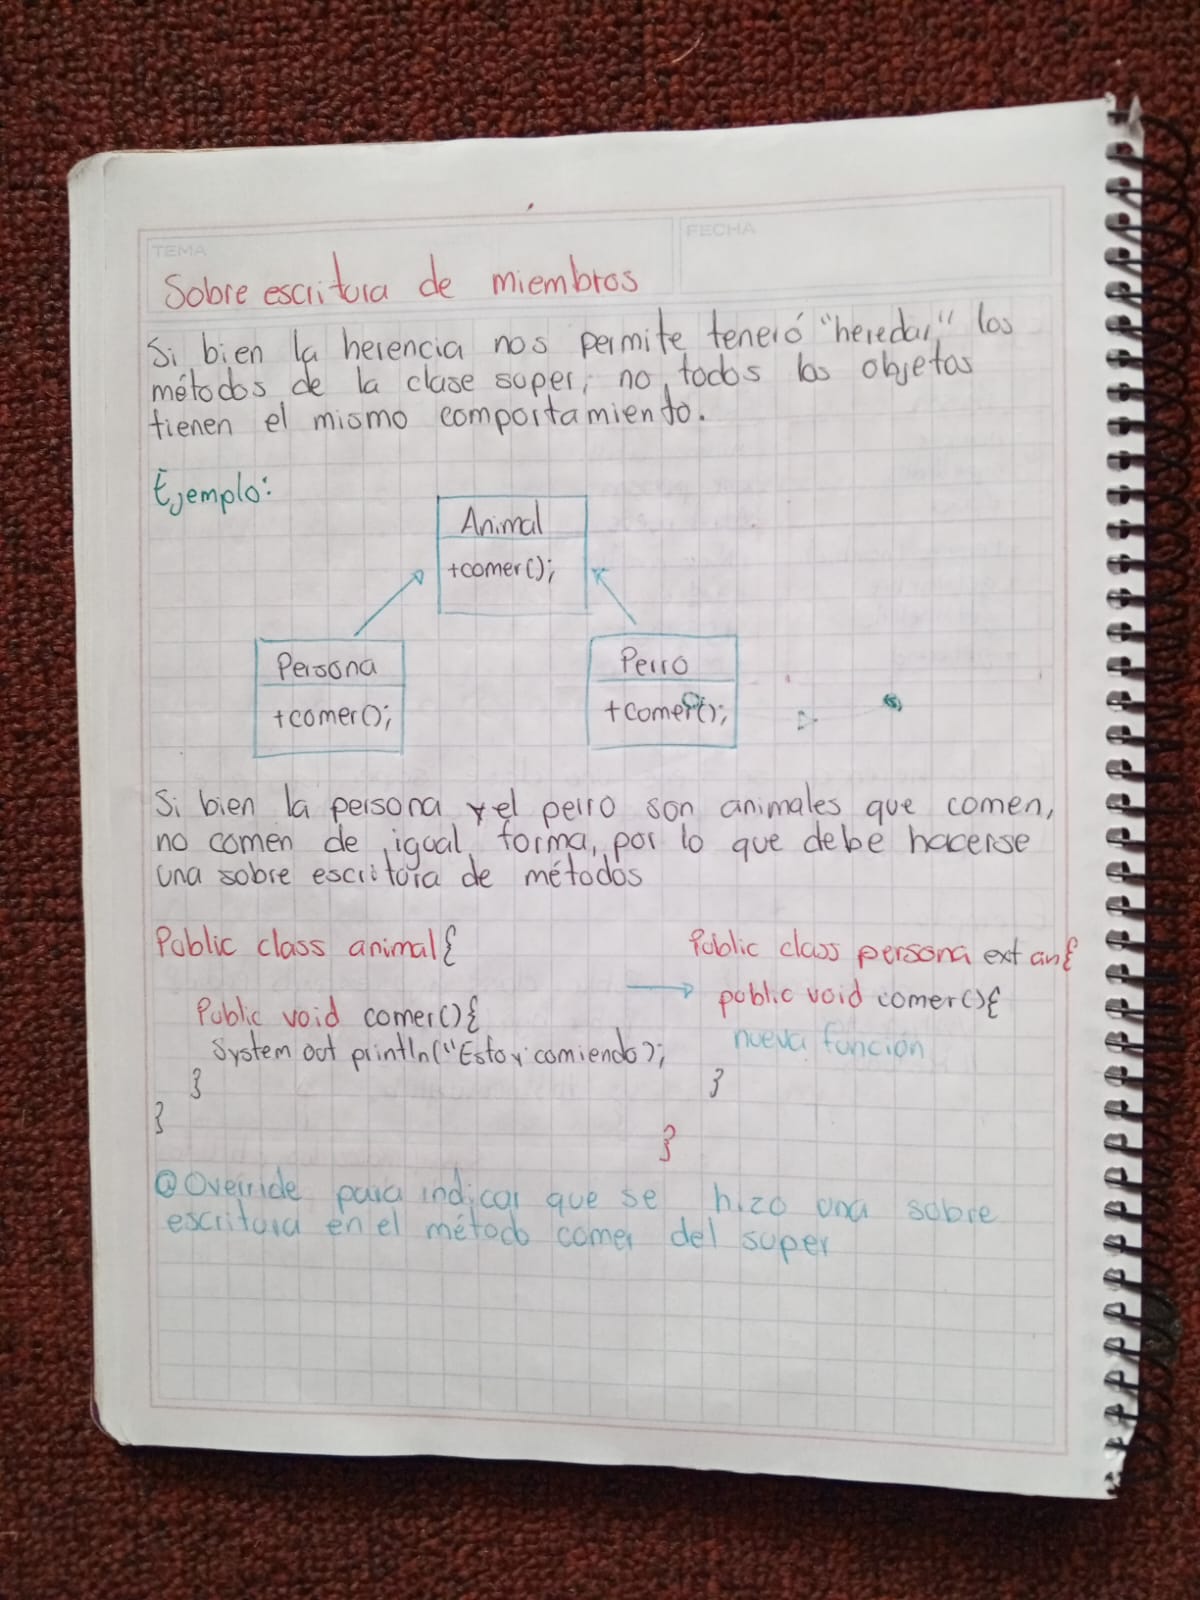 TEMA
FECHA
Sobre escritura de miembros
Si bien la herencia nos permite teneró "heredar" los
métodos de la clase super, no todos los objetos
tienen el mismo comportamiento.
Ejemplo:
Animal
+comer();
Persona
+comer();
Perro
+comer();
Si bien la persona y el perro son animales que comen,
no comen de igual forma, por lo que debe hacerse
una sobre escritura de métodos
Public class animal{
Public void comer(){
System out println("Estoy comiendo);
}
}
Public class persona ext an{
public void comer(){
nueva función
}
}
@Override para indicar que se hizo una sobre
escritura en el método comer del super